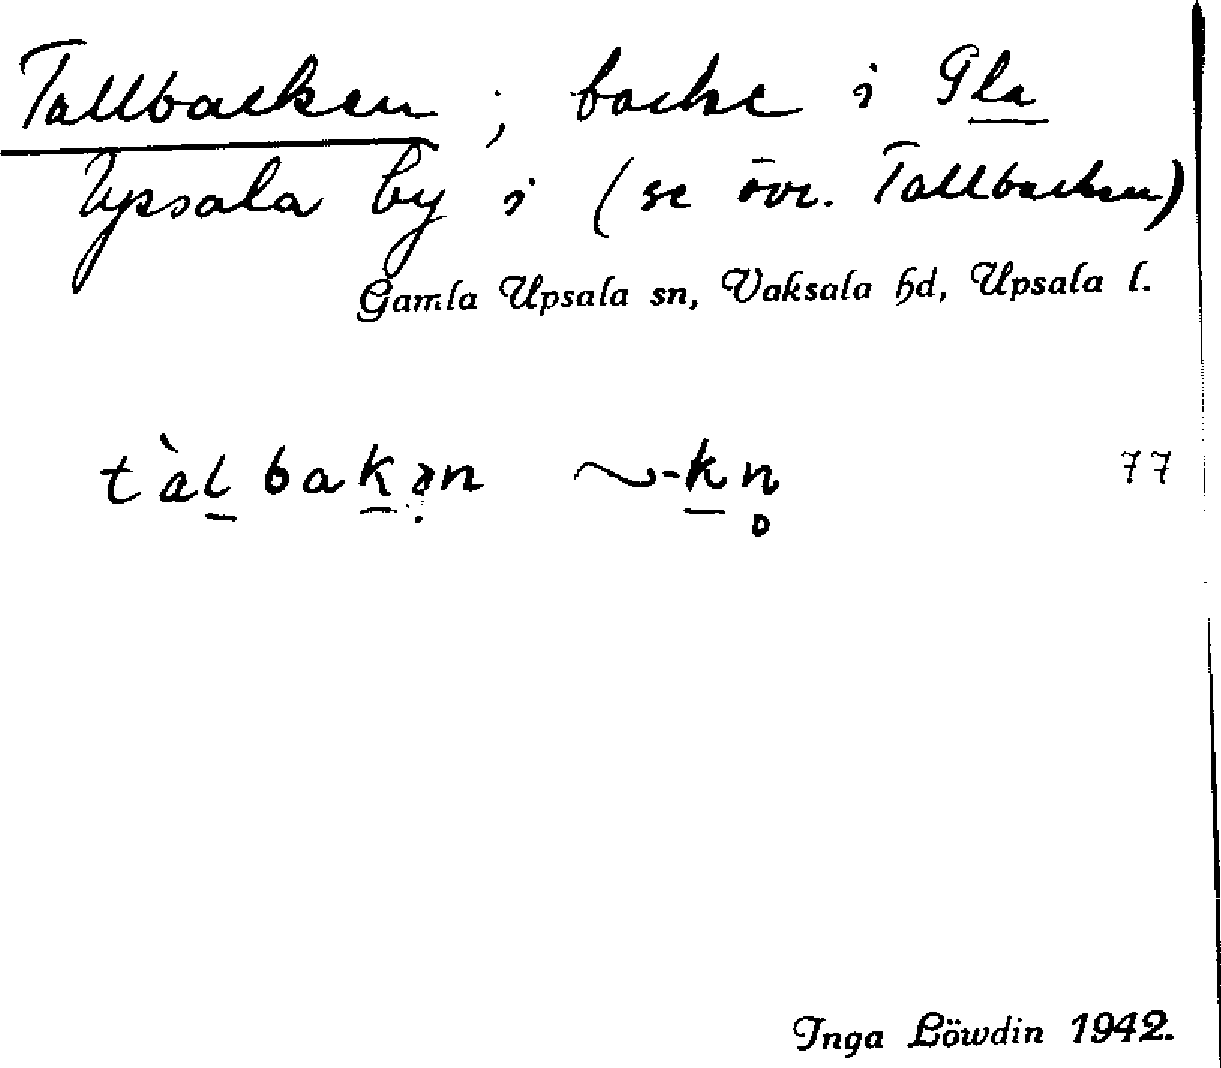 Tallbacken ; backe i Gla
Upsala by i (se övr. Tallbacken)
Gamla Upsala sn, Vaksala hd, Upsala l.
tàl bakən ~-kn̥ 77
Inga Löwdin 1942.